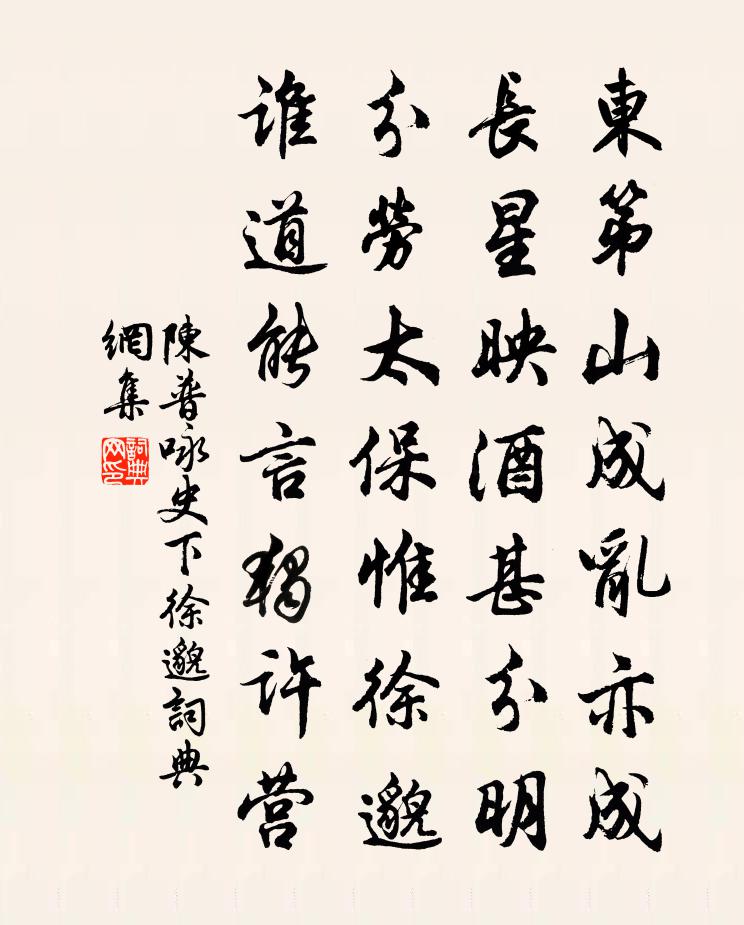 東第山成亂亦成
長星映酒甚分明
分勞太保惟徐邈
谁道能言獨许营
陳普咏史下徐邈詞典
網集
詞典
网印